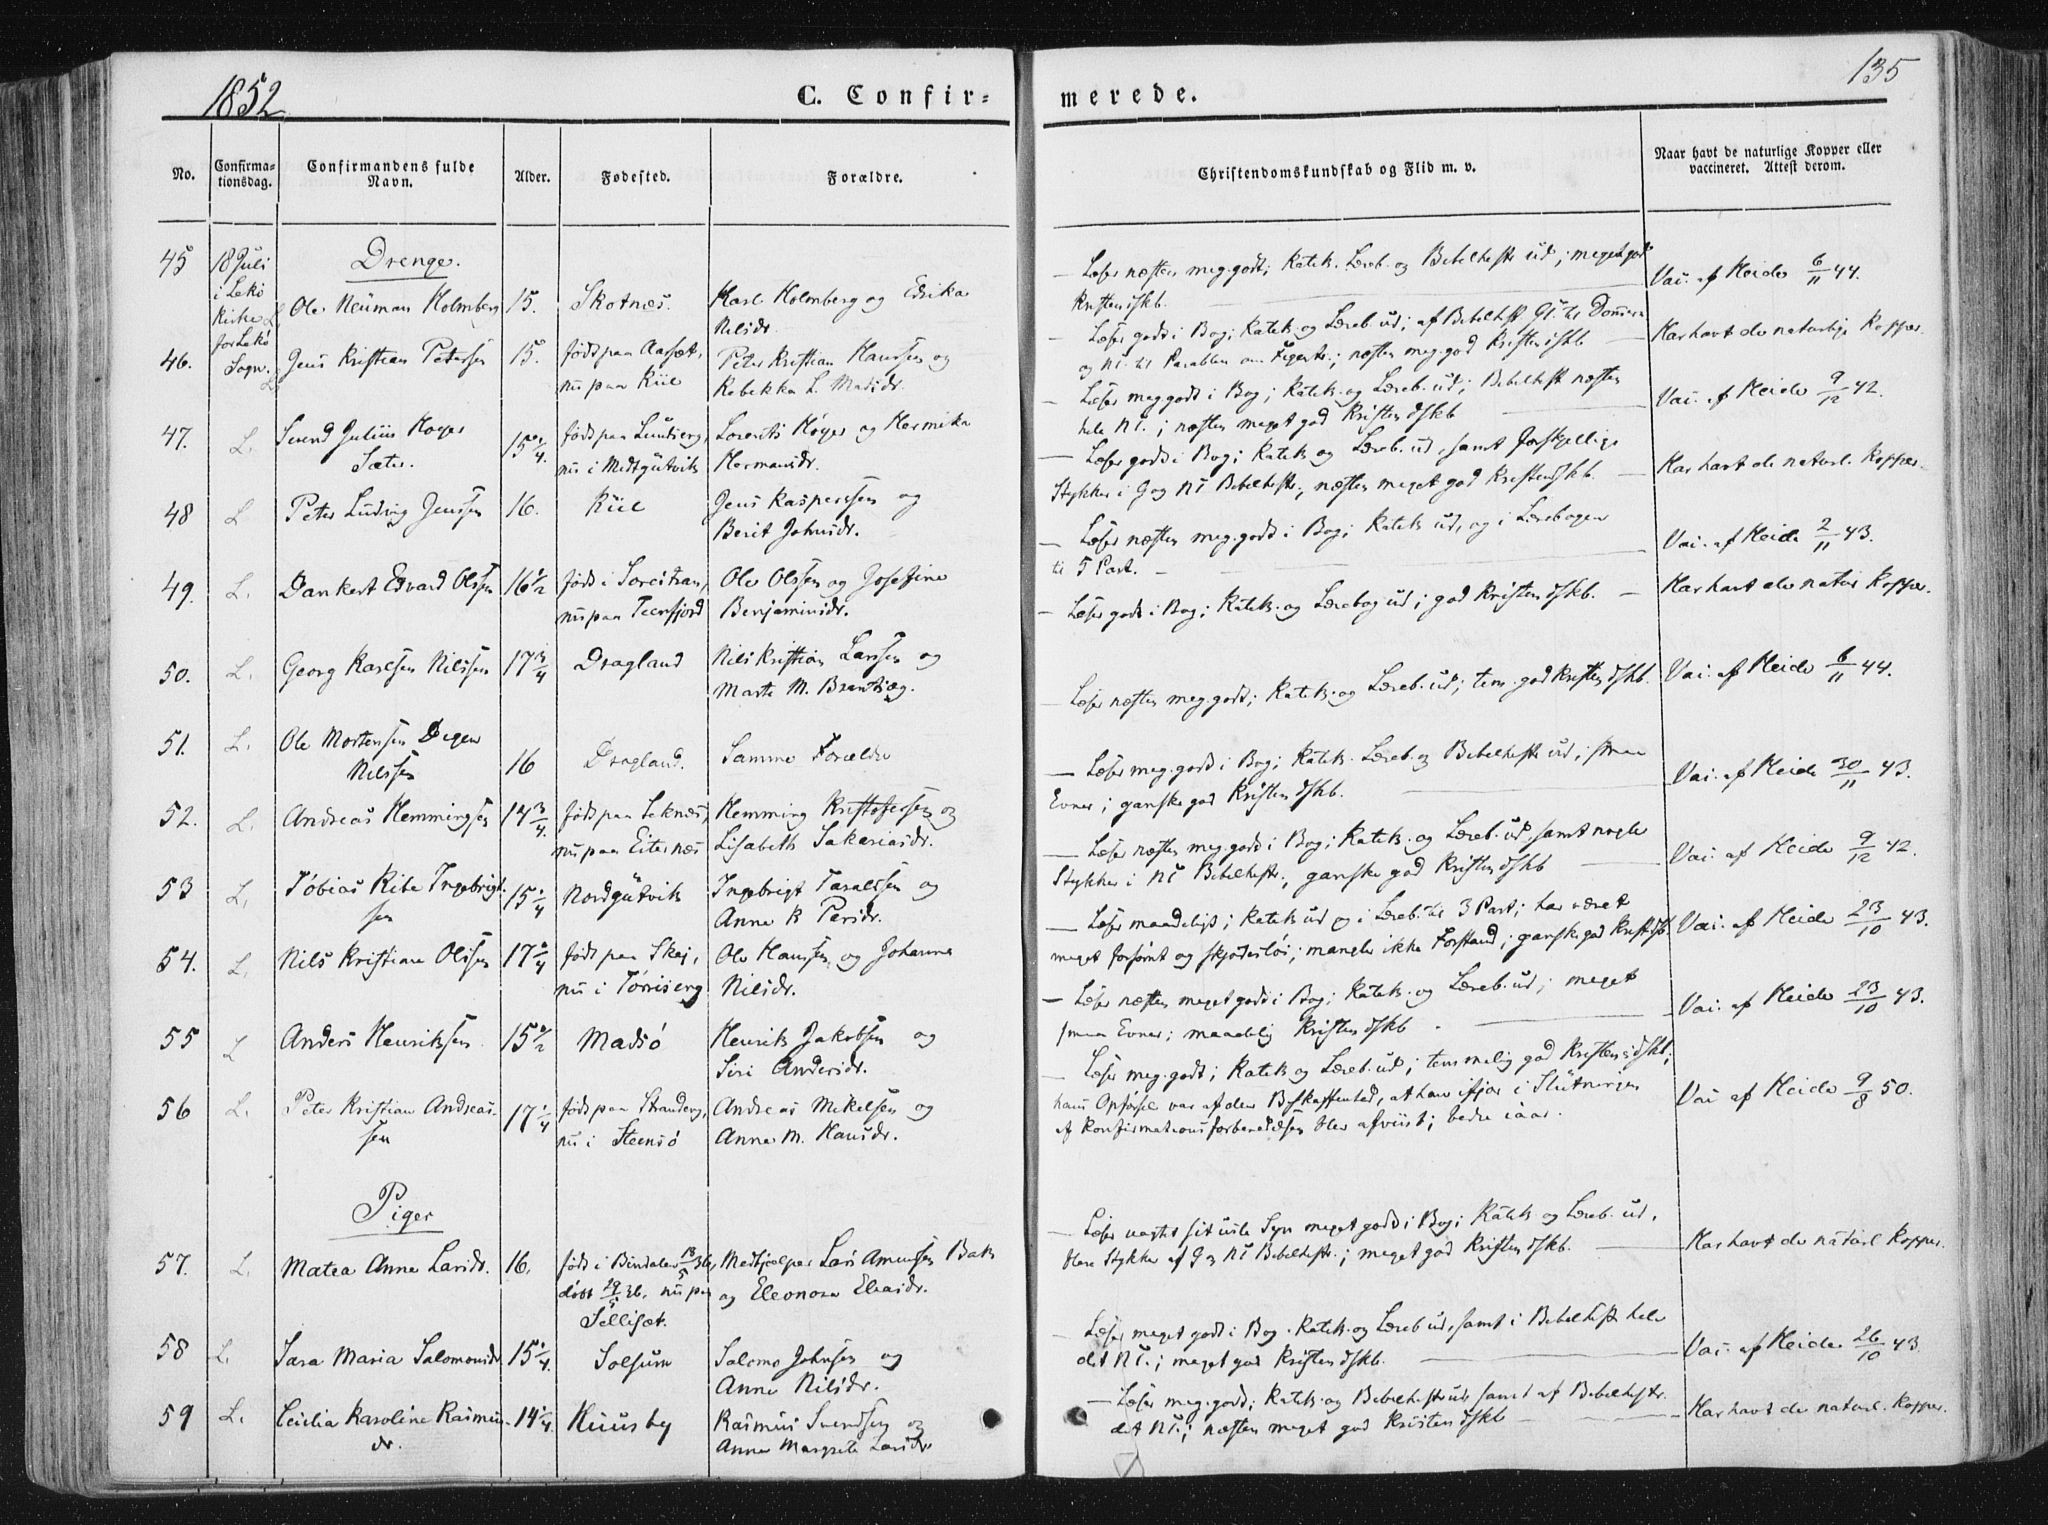 1852
C. Confir-
merede.
135
No.
Confirma-
tionsdag.
Confirmandens fulde
Navn.
Alder.
Fødested.
Forældre.
Christendomskundskab og Flid m. v.
Naar havt de naturlige Kopper eller
vaccineret. Attest derom.
18 Juli
i Lekö
Kirke
for Lekö
Sogn.
Drenge.
45
Ole Neuman Holmberg
15.
Skotnes.
Karl Holmberg og Edrika
Nilsdr.
Læser næsten meg. godt; Katek. Læreb. og Bibelhist ud; meget god
Kristendskb.
Vai. af Heide 6/11 44.
46.
Jens Kristian Petersen
15.
född paa Aasæt,
nu paa Kiil
Peter Kristian Hansen og
Rebekka L. Madsdr.
Læser godt i Bog; Katek. og Læreb. ud; af Bibelhist Gl. til Dommern
og NT. til Parabblen om Figentr.; næsten meg. god Kristendskb
Har havt de naturlige Kopper.
47.
L.
Svend Julius Hoyer
Sæter.
15 1/4.
född paa Lundseng,
nu i Medtgutvik
Lorents Höyer og Hermika
Hermansdr.
Læser meg godt i Bog; Katek. og Læreb. ud; Bibelhist næsten
hele NT.; næsten meget god Kristendskb
Vai. af Heide 9/12 42.
48
L
Peter Ludvig Jenssen
16.
Kiil
Jens Kasperssen og
Berit Johnsdr.
Læser godt i Bog; Katek og Læreb. ud, samt forskjellige
Stykker i G og NT Bibelhistr., næsten meget god Kristendskb.
Har havt de naturl. Kopper.
49.
L.
Dankert Edvard Olssen
16 1/2
född i
nu paa Teenfjord
Ole Olssen og Josefine
Benjaminsdr.
Læser næsten meg. godt i Bog; Katek ud, og i Lærebogen
til 5 Part.
Vai. af Heide 2/11 43.
50.
L.
Georg Karlsen Nilssen
17 3/4
Dragland
Nils Kristian Larssen og
Marte M. Brantsæg.
Læser godt i Bog; Katek. og Lærebog ud; god Kristendskb.
Har havt de natur Kopper.
51.
L.
Ole Mortensen Degen
Nilssen
16
Dragland.
Samme Forældre
Læser næsten meg. godt; Katek. og Læreb. ud; tem. god Kristendskb.
Vai. af Heide 6/11 44.
52.
L.
Andreas Hemmingsen
14 3/4.
född paa Leknes,
nu paa Eiternes
Hemming Kristofersen og
Lisabeth Sakariasdr.
Læser meg. godt i Bog; Katek. Læreb. og Bibelhistr ud; smaa
Evner; ganske god Kristendskb.
Vai. af Heide 30/11 43.
53
L.
Tobias Ribe Ingebrigt-
sen
15 1/4
Nordgutvik
Ingebrigt Taraldsen og
Anne B Persdr.
Læser næsten meg. godt i Bog; Katek. og Læreb. ud, samt nogle
Stykker i NT Bibelhistr., ganske god Kristendskb
Vai. af Heide 9/12 42.
54.
L.
Nils Kristian Olssen
17 1/4
född paa Skei,
nu i Torriseng
Ole Hanssen og Johanna
Nilsdr.
Læser maadeligt; Katek ud og i Læreb. til 3 Part; har været
meget forsömt og skjödeslös; mangler ikke Forstand; ganske god Kristdskb.
Vai. af Heide 23/10 43.
55
L
Anders Henriksen
15 1/2
Madsö
Henrik Jakobsen og
Siri Andersdr.
Læser næsten meget godt i Bog; Katek. og Læreb. ud; meget
smaa Evner; maadelig Kristendskb
Vai. af Heide 23/10 43.
56
L.
Peter Kristian Andreas-
sen
17 1/4
född paa Strandeng,
nu i Steensö
Andreas Mikelsen og
Anne M. Hansdr.
Læser meg. godt; Katek og Læreb. ud; temmelig god Kristensdskb;
hans Opförsel var af den Beskaffenhed, at han ifjor i Slutningen
af Konfirmationsforberedelsen blev afviist; bedre iaar.
Vai af Heide 9/8 50.
Piger
57.
L.
Matea Anne Larsdr.
16.
född i Bindalen 13/5 36,
döbt 29/5 36. nu paa
Sellisæt.
Medhjelper Lars Amunsen Bak
og Eleonora Eliasdr.
Læser uagtet sit usle Syn meget godt i Bog; Katek og Læreb. ud,
flere Stykker af G og NT Bibelhistr.; meget god Kristendskb.
Har havt de naturl Kopper.
58
L.
Sara Maria Salomonsdr.
15 1/4.
Solsum
Salomo Johnsen og
Anne Nilsdr.
Læser meget godt i Bog. Katek. og Læreb ud, samt i Bibelhist hele
det NT.; meget god Kristendskb.
Vai. af Heide 26/10 43.
59
L.
Ceicilia Karoline Rasmus-
dr.
14 1/4.
Huusby
Rasmus Svendsen og
Anne Margrete Larsdr.
Læser meg. godt; Katek. og Bibelhistr ud, samt af Bibelhistr.
det NT.; næsten meget god Kristendskb
Har havt de naturl. Kopper.